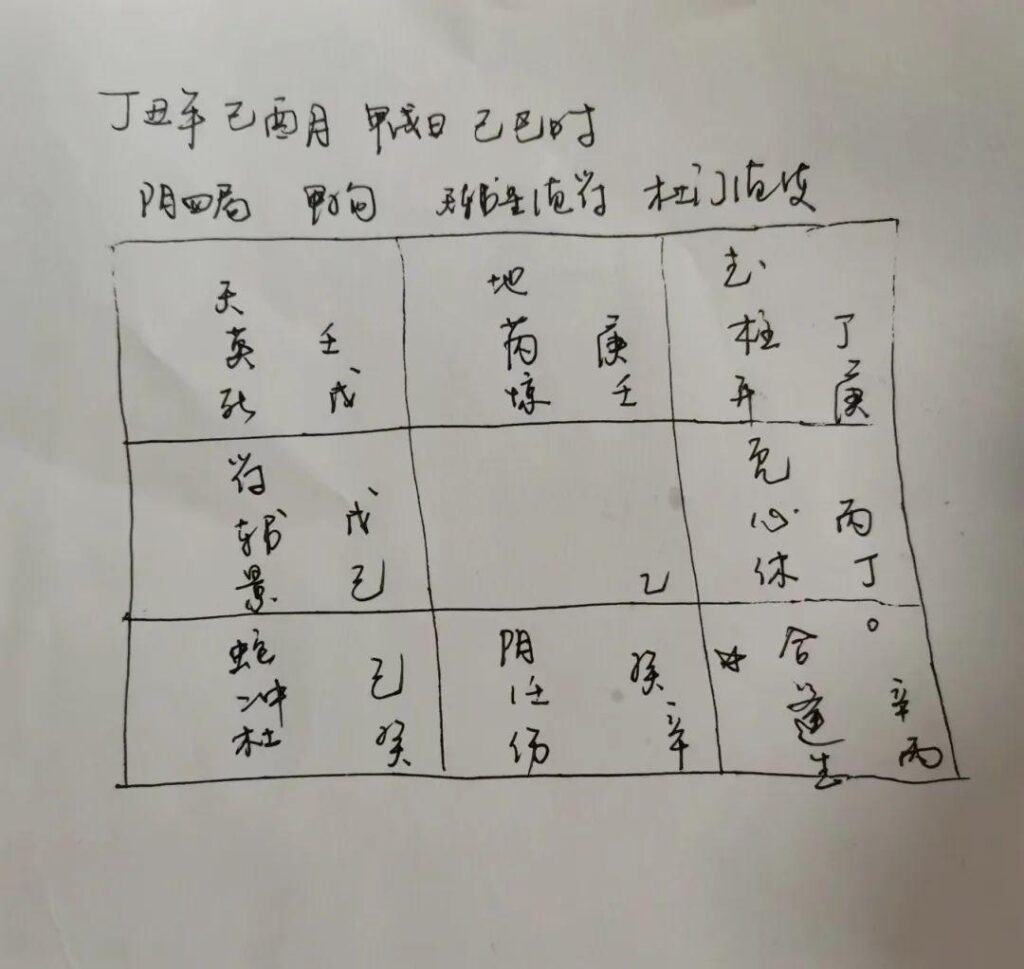 丁丑年 己酉月 甲戌日 己巳时
阴四局 甲子旬 天辅星值符 杜门值使
天
英 壬
死 戊
地
芮 庚
惊 壬
玄
柱 丁
开 庚
符
辅 戊
景 己
乙
虎
心 丙
休 丁
蛇 己
冲
杜 癸
阴 癸
任
伤 辛
☆ 合 ○
蓬 辛
生 丙